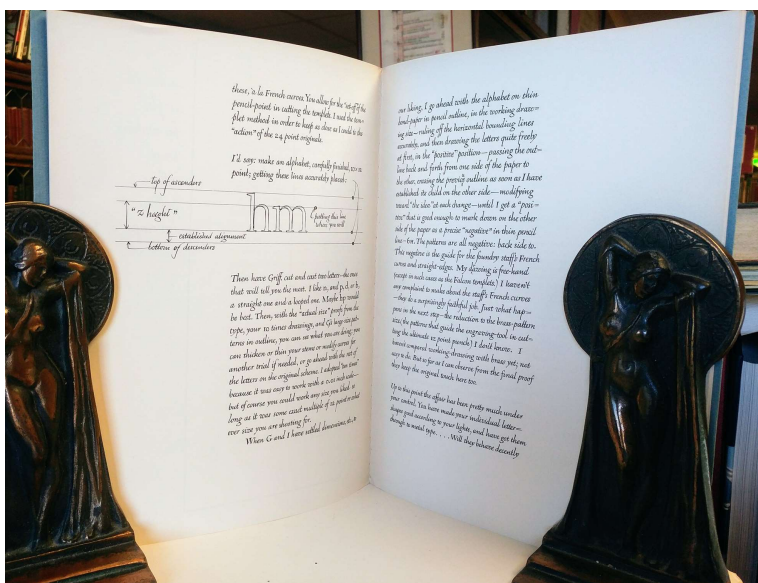 these, à la French curves. You allow for the "set-off" of the
pencil-point in cutting the templet. I used the tem-
plet method in order to keep as close as I could to the
"action" of the 24 point originals.
I'd say: make an alphabet, carefully finished, 10 x 12
point; getting these lines accurately placed:
top of ascenders
"z height"
hm
putting this line where you will
established alignment
bottom of descenders
Then have Griff. cut and cast two letters—the ones
that will tell you the most. I like n, and p, d, or b,
a straight one and a looped one. Maybe hp would
be best. Then, with the "actual size" proofs from the
type, your 10 times drawings, and G's large-size pat-
terns in outline, you can see what you are doing; you
can thicken or thin your stems or modify curves for
another trial if needed, or go ahead with the rest of
the letters on the original scheme. I adopted "ten times"
because it was easy to work with a 0.01 inch scale—
but of course you could work any size you liked so
long as it was some exact multiple of 12 point or what
ever size you are shooting for.
When G and I have settled dimensions, etc., to
our liking, I go ahead with the alphabet on thin
bond-paper in pencil outline, in the working draw-
ing size—ruling off the horizontal bounding lines
accurately, and then drawing the letters quite freely
at first, in the "positive" position—passing the out-
line back and forth from one side of the paper to
the other, erasing the previous outline as soon as I have
established its child on the other side—modifying
toward "the idea" at each change—until I get a "posi-
tive" that is good enough to mark down on the other
side of the paper as a precise "negative" in thin pencil
line—6H. The patterns are all negative: back side to.
This negative is the guide for the foundry staff's French
curves and straight-edges. My drawing is free-hand
(except in such cases as the Falcon templets.) I haven't
any complaint to make about the staff's French curves
—they do a surprisingly faithful job. Just what hap-
pens on the next step—the reduction to the brass-pattern
size; the patterns that guide the engraving-tool in cut-
ting the ultimate 12 point punch) I don't know. I
haven't compared working drawing with brass yet; not
easy to do. But so far as I can observe from the final proof
they keep the original touch here too.
Up to this point the affair has been pretty much under
your control. You have made your individual letter-
shapes good according to your lights, and have got them
through to metal type. . . . Will they behave decently